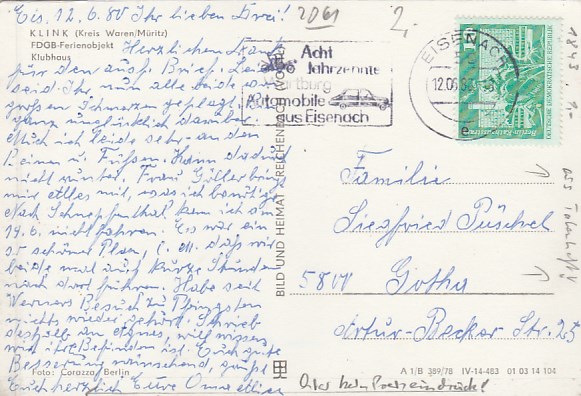 Eis., 12.6.80 Ihr lieben Drei!
2061
2.
KLINK (Kreis Waren/Müritz)
FDGB-Ferienobjekt
Klubhaus
Herzlichen Dank
für den ausf. Brief. Leider
seid Ihr nun alle beide von
großen Schmerzen geplagt. Bin
ganz unglücklich darüber.
Auch ich leide sehr an den
Beinen u. Füßen. Kann
nicht runter. Frau
mir alles mit, was ich benötige.
Nach Schnepfenthal kann ich am
19.6. nicht fahren. Es war ein
so schöner Plan, daß wir
beide mal auf kurze Stunden
nach dort führen. Habe seit
Werners Besuch zu Pfingsten
nichts wieder gehört. Schrieb
deshalb an Agnes, will wissen
wie ihr Befinden ist. Euch gute
Besserung wünschend, grüßt
Euch herzlich Eure Oma
Foto: Corazza, Berlin
BILD UND HEIMAT REICHENBACH (VOGTL)
Acht
Jahrzehnte
Wartburg
Automobile
aus Eisenach
EISENACH
12.06.80
e
10
DEUTSCHE DEMOKRATISCHE REPUBLIK
1843
Familie
Siegfried Püschel
5800 Gotha
Artur-Becker Str. 25
A 1/B 389/78 IV-14-483 01 03 14 104